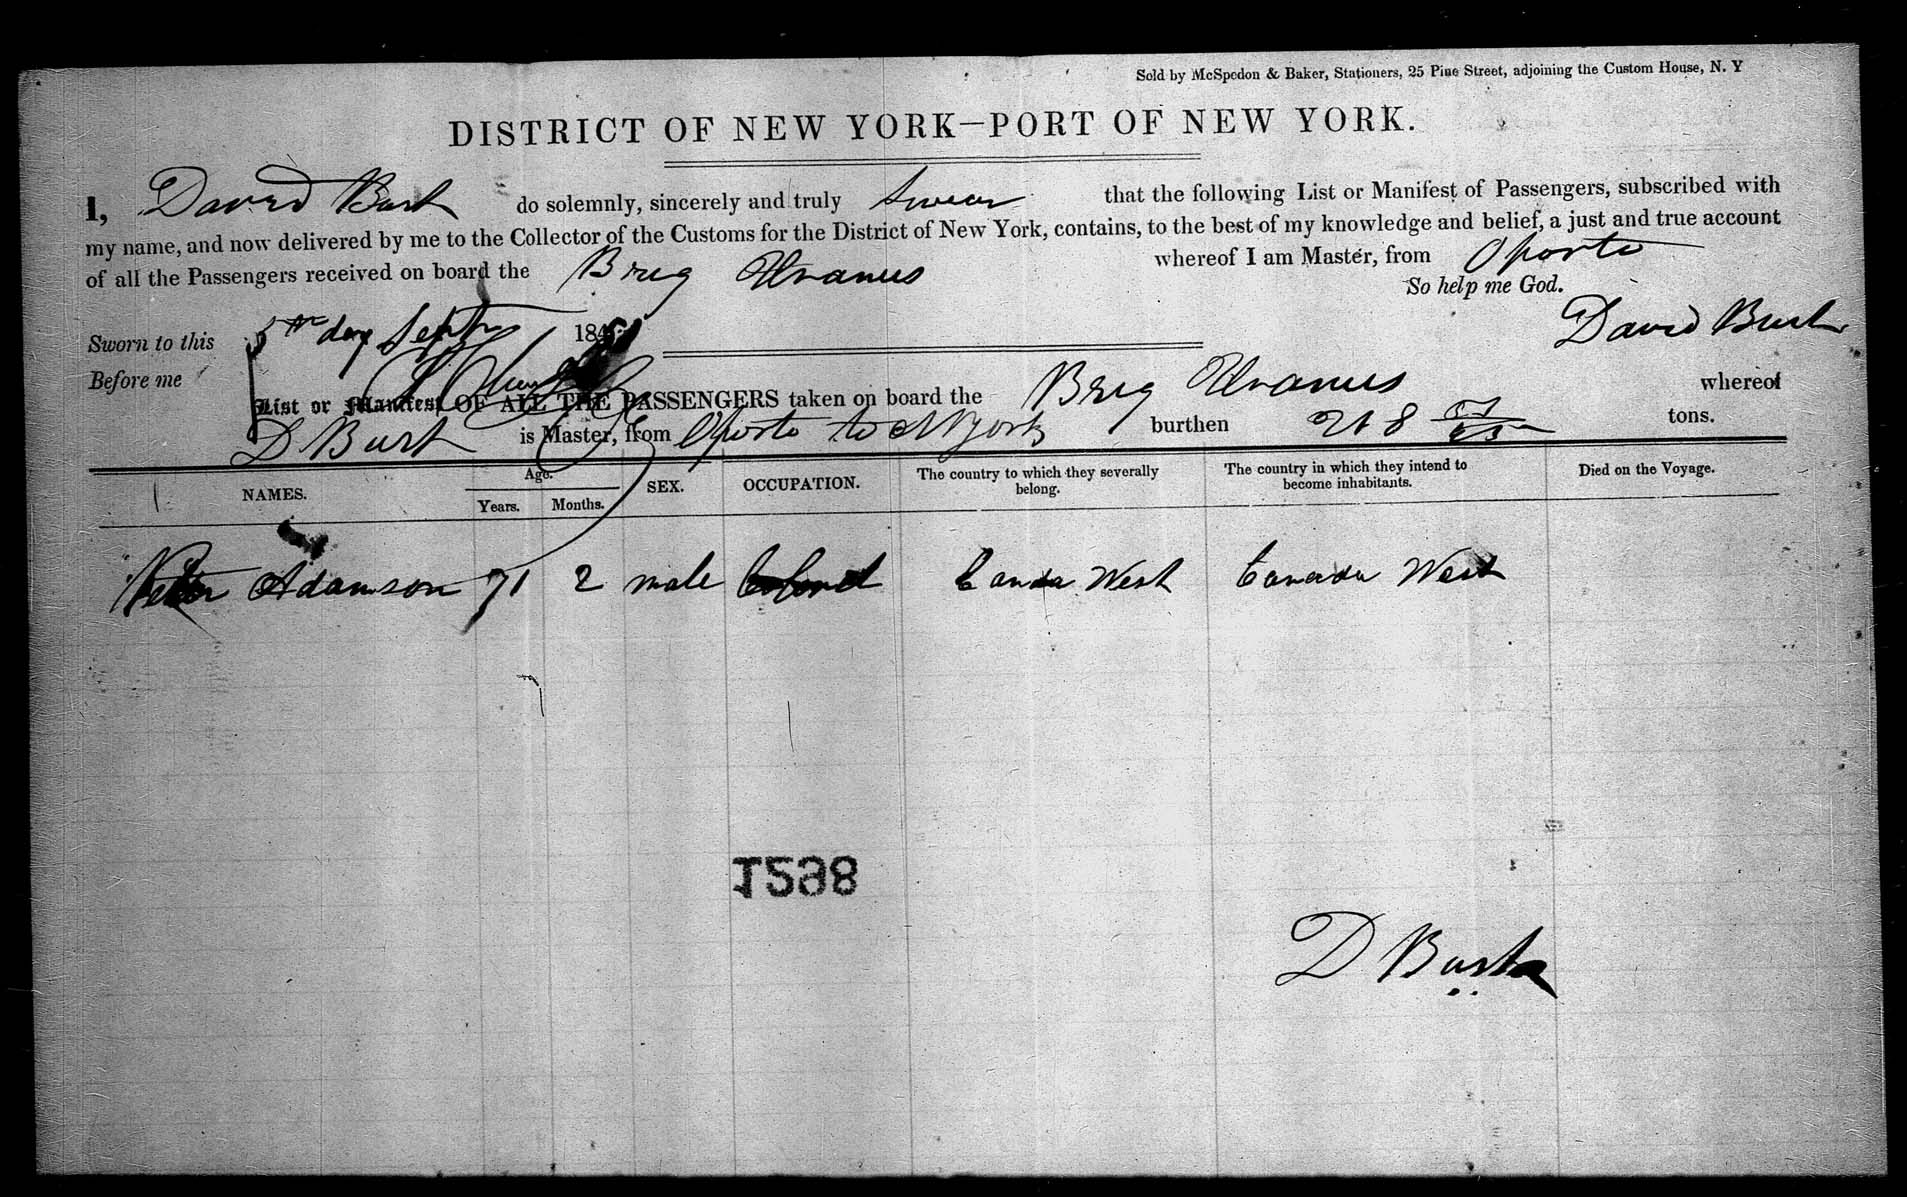 Sold by McSpedon & Baker, Stationers, 25 Pine Street, adjoining the Custom House, N. Y
DISTRICT OF NEW YORK—PORT OF NEW YORK.
I, David Burk do solemnly, sincerely and truly Swear that the following List or Manifest of Passengers, subscribed with
my name, and now delivered by me to the Collector of the Customs for the District of New York, contains, to the best of my knowledge and belief, a just and true account
of all the Passengers received on board the Breg Uranus whereof I am Master, from Oporto
So help me God.
Sworn to this 5th day Sept 184 David Burk
Before me
List or Manifest OF ALL THE PASSENGERS taken on board the Breg Uranus whereof
D Burk is Master, from Oporto to NYork burthen 218 tons.
NAMES. Age. Years. Months. SEX. OCCUPATION. The country to which they severally belong. The country in which they intend to become inhabitants. Died on the Voyage.
Peter Adamson 71 2 male Canda West Canada West
1268
D Burk